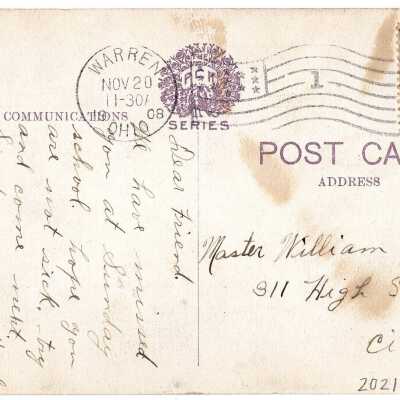 WARREN
NOV 20
11-30A
1908
OHIO
1
SERIES
COMMUNICATIONS
POST CA
ADDRESS
Dear Friend.
We have missed
you at Sunday
school. hope you
are not sick. try
and come next
Master William
311 High S
Ci
2021